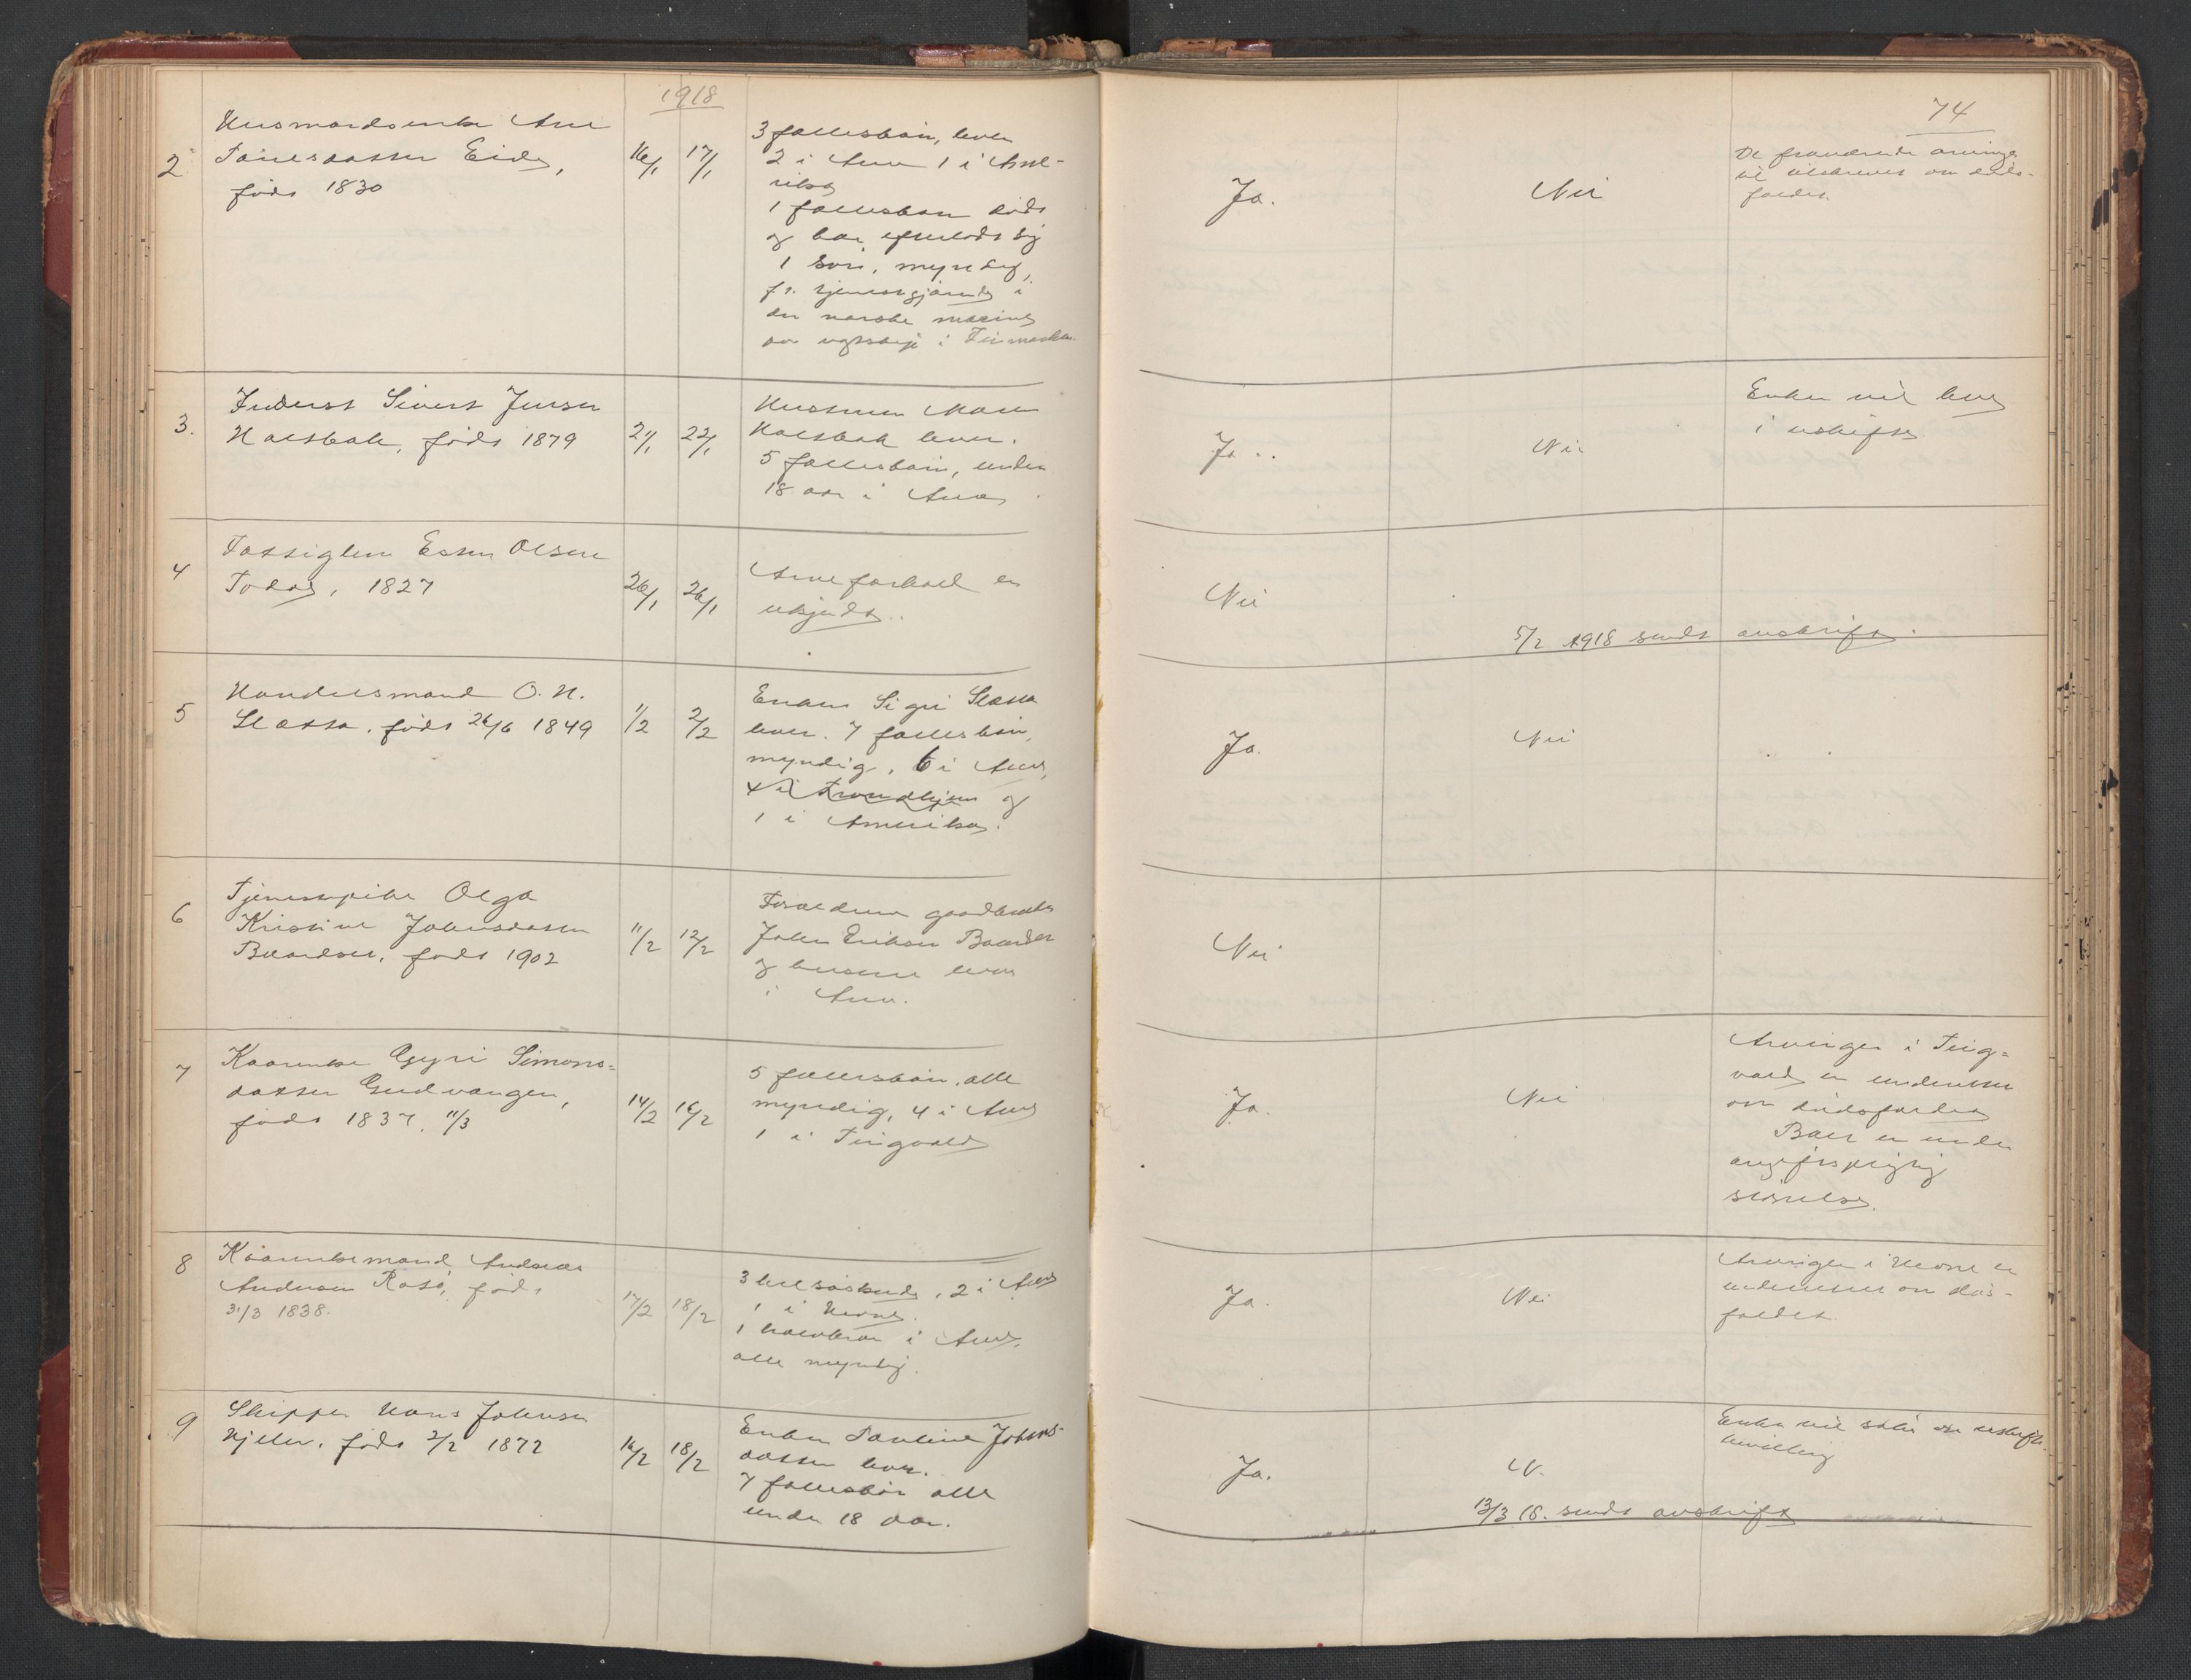 1918
2
Husmandsenke Ane
Tøresdatter Eide,
født 1830
16/1
17/1
3 fællesbørn, lever
2 i Aure 1 i Ame-
rika
1 fællesbarn død
og har efterladt sig
1 søn, myndig,
f. t. tjenestgjørende i
den norske marine
paa vagtskip i Finmarken
3.
Inderst Sivert Jensen
Halsbak, født 1879
21/1
22/1
Hustruen Maren
Halsbak lever.
5 fællesbørn, under
18 aar i Aure
4
Fattiglem Esten Olsen
Todal, 1827
26/1
26/1
Arveforhold er
ukjendt.
5
Handelsmand O. H.
Sletta. født 26/6 1849
1/2
2/2
Enken Sigri Sletta
lever. 7 fællesbørn,
myndig, 6 i Aure,
4 i Trondhjem og
1 i Amerika.
6
Tjenestepike Olga
Kristine Johnsdatter
Baardset, født 1902
11/2
12/2
Forældrene gaardbruker
John Eriksen Baardset
og hustru lever
i Aure.
7
Kaarenke Gyri Simons-
datter Gudvangen,
født 1837. 11/3
14/2
16/2
5 fællesbørn, alle
myndig, 4 i Aure
1 i Tingvold
8
Kaarenkemand Andreas
Andersen Rotsø, født
31/3 1838.
17/2
18/2
3 helsøskende, 2 i Aure
1 i Hevne.
1 halvbror i Aure,
alle myndig.
9
Skipper Hans Johnsen
Kjelen. født 2/2 1872
16/2
18/2
Enken Pauline Johns-
datter lever.
7 fællesbørn alle
under 18 aar.
74
Ja.
Nei
De fraværende arvinge
vil tilskrives om døds-
faldet.
Ja.
Nei
Enken vil leve
i uskifte
Nei
5/2 1918 sendt avskrift.
Ja.
Nei
Nei
Ja.
Nei
Arvingen i Ting-
vold er underrettet
om dødsfaldet
Boet er under
avgiftspligtig
størrelse.
Ja.
Nei
Arvingen i Hevne er
underrettet om døds-
faldet
Ja.
N.
Enken vil søke om uskifte-
bevilling
13/3 18. sendt avskrift